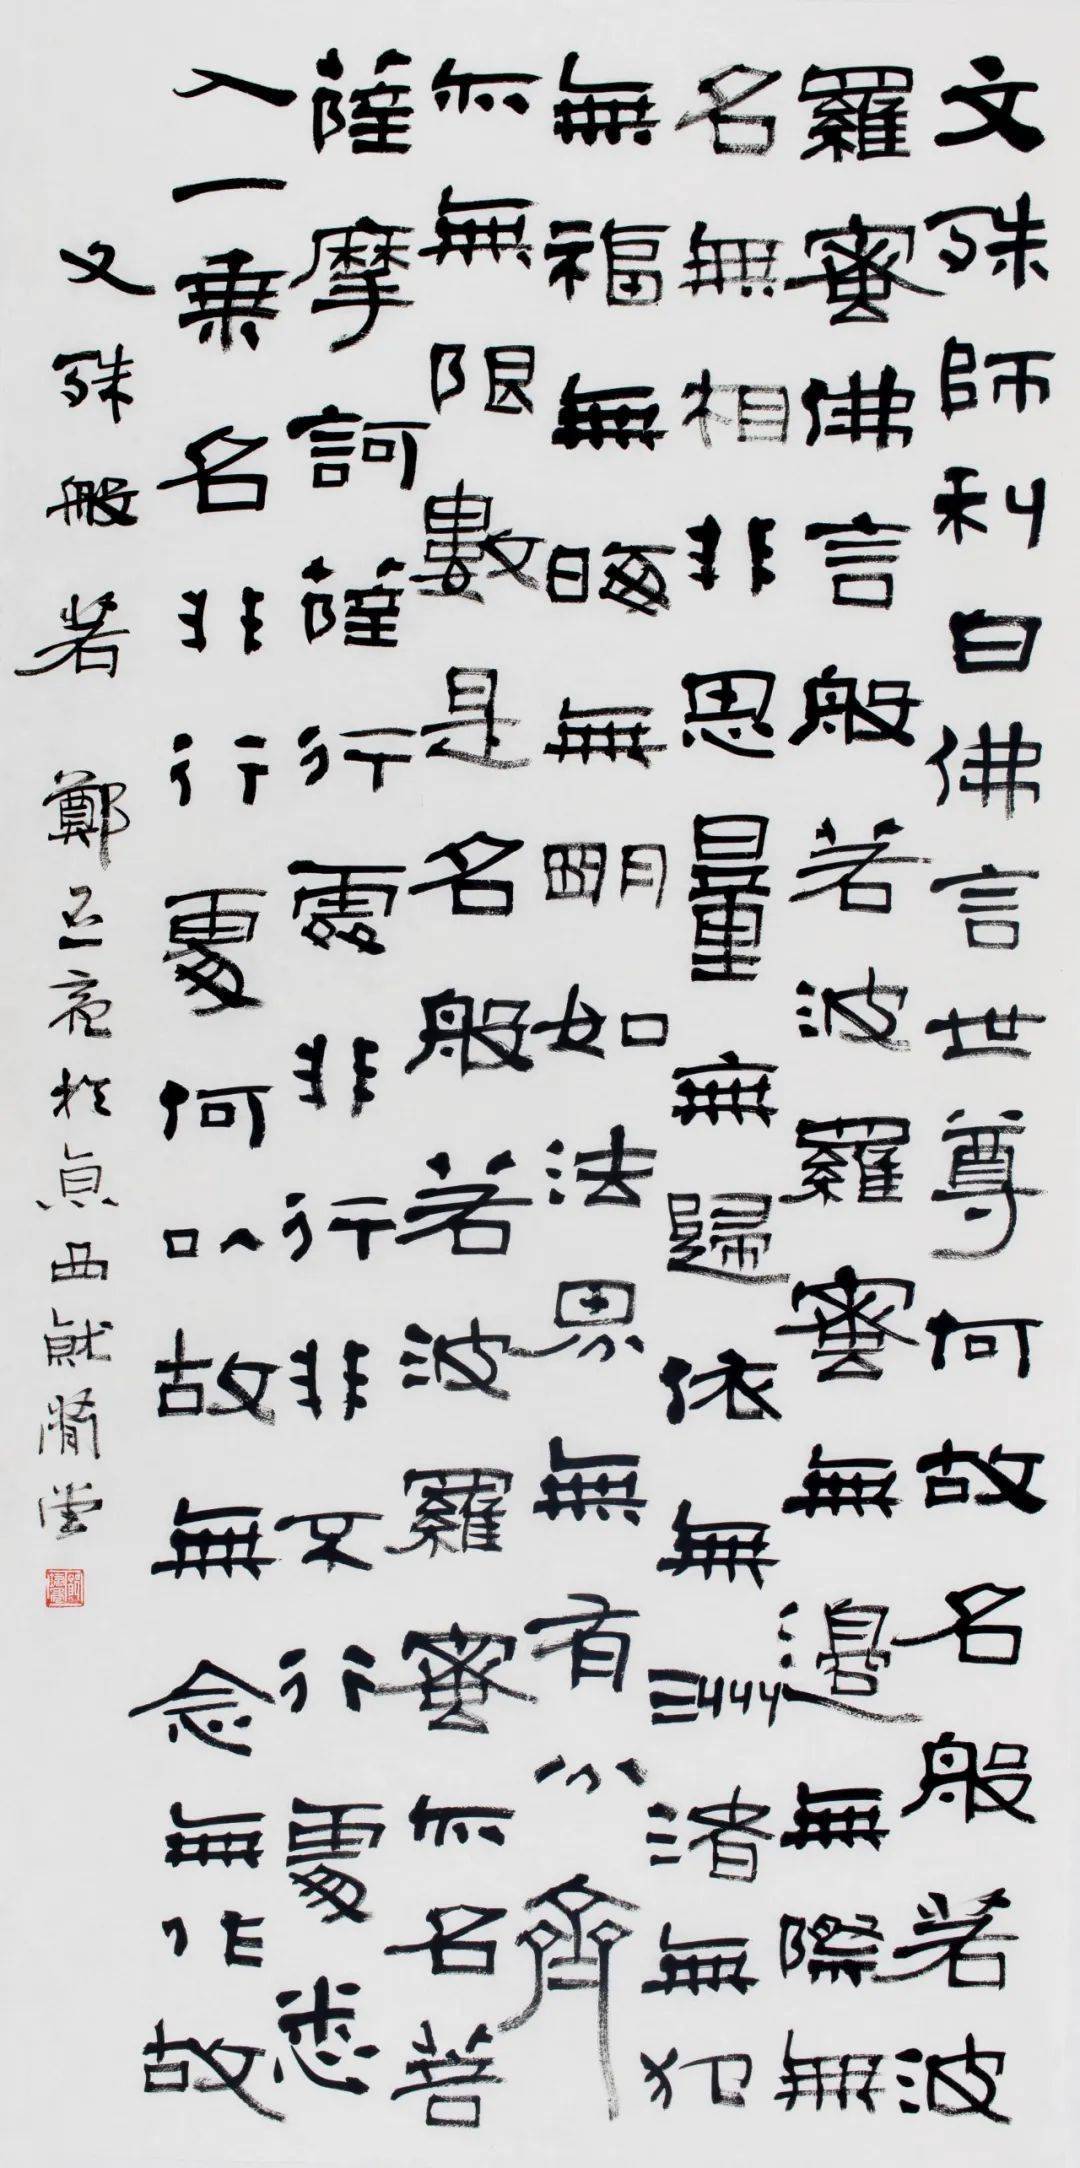 文殊師利白佛言世尊何故名般若波
羅蜜佛言般若波羅蜜無邊無際無
名無相非思量無歸依無洲渚無犯
無福無晦無明如法界無有分齊
亦無限數是名般若波羅蜜亦名菩
薩摩訶薩行處非行非不行處悉
入一乘名非行處何以故無念無作故
文殊般若 鄭亮於京西堂